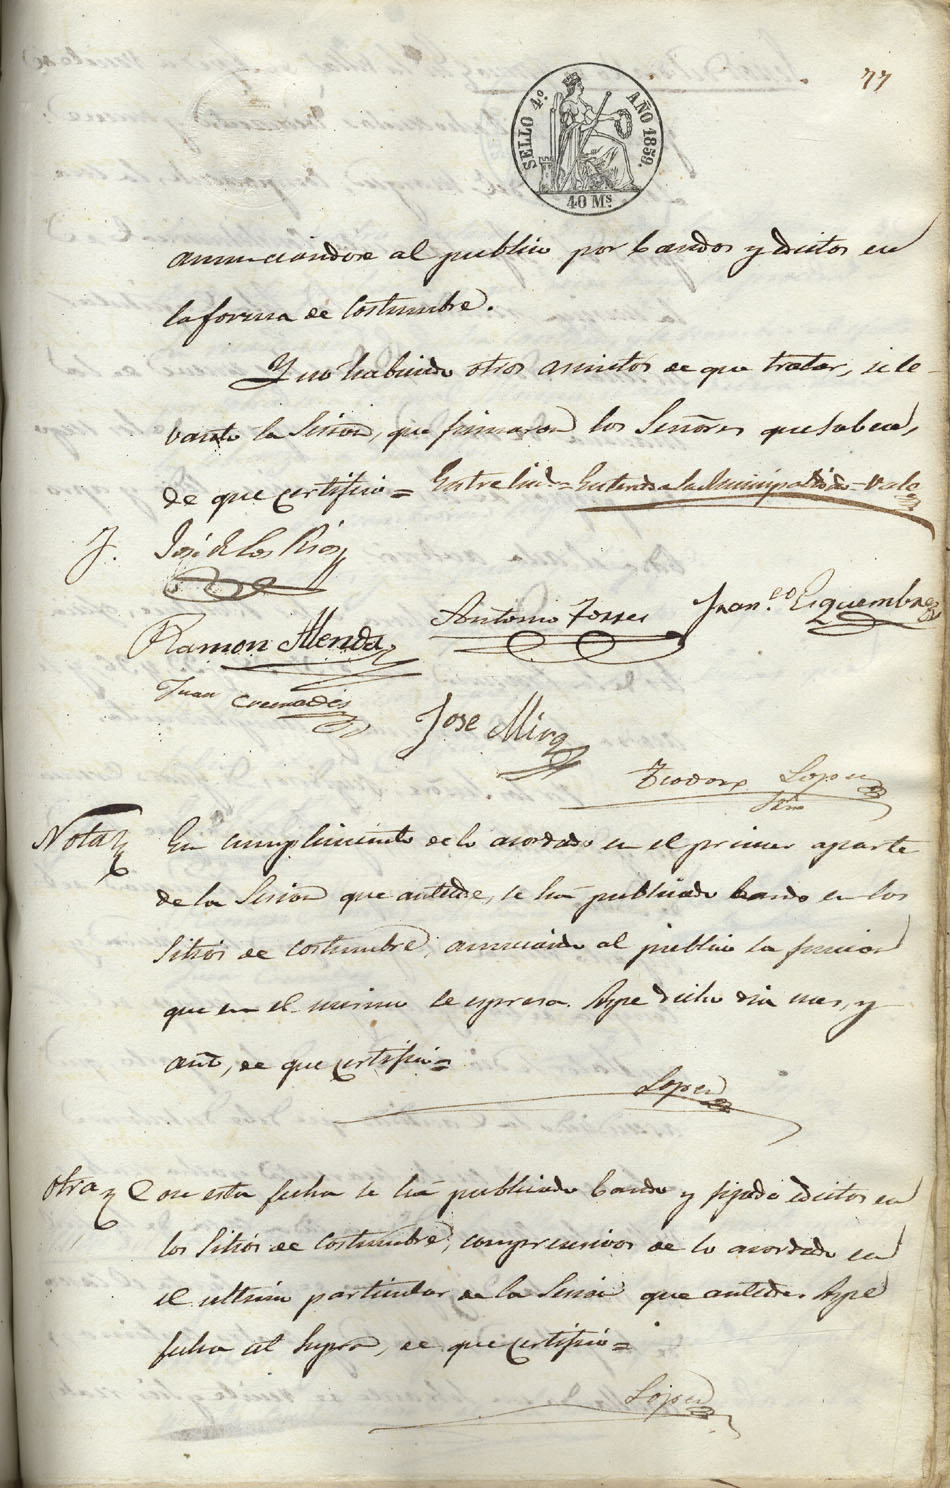 77
SELLO 4.º AÑO 1859.
40 Ms
anunciandose al publico por bandos y edictos en
la forma de costumbre.
Y no habiendo otros asuntos de que tratar, se le-
vantó la Sesion, que firmaron los Señores que saben,
de que certifico = Entre lin.s = Enterada la Municipalidad = Vale
José de los Rios
Antonio Torres Fran.co Esquembre
Ramon Alenda
Juan Cremades
Jose Mira
Teodoro Lopez
Srio
Nota En cumplimiento de lo acordado en el primer aparte
de la Sesion que antecede, se há publicado bando en los
Sitios de costumbre, anunciando al publico la funcion
que en el mismo se espresa. Aspe dicho dia mes, y
año, de que certifico =
Lopez
Otra Con esta fecha se há publicado bando y fijado edictos en
los Sitios de costumbre, comprensivos de lo acordado en
el ultimo particular de la Sesion que antecede. Aspe
fecha ut supra, de que certifico =
Lopez